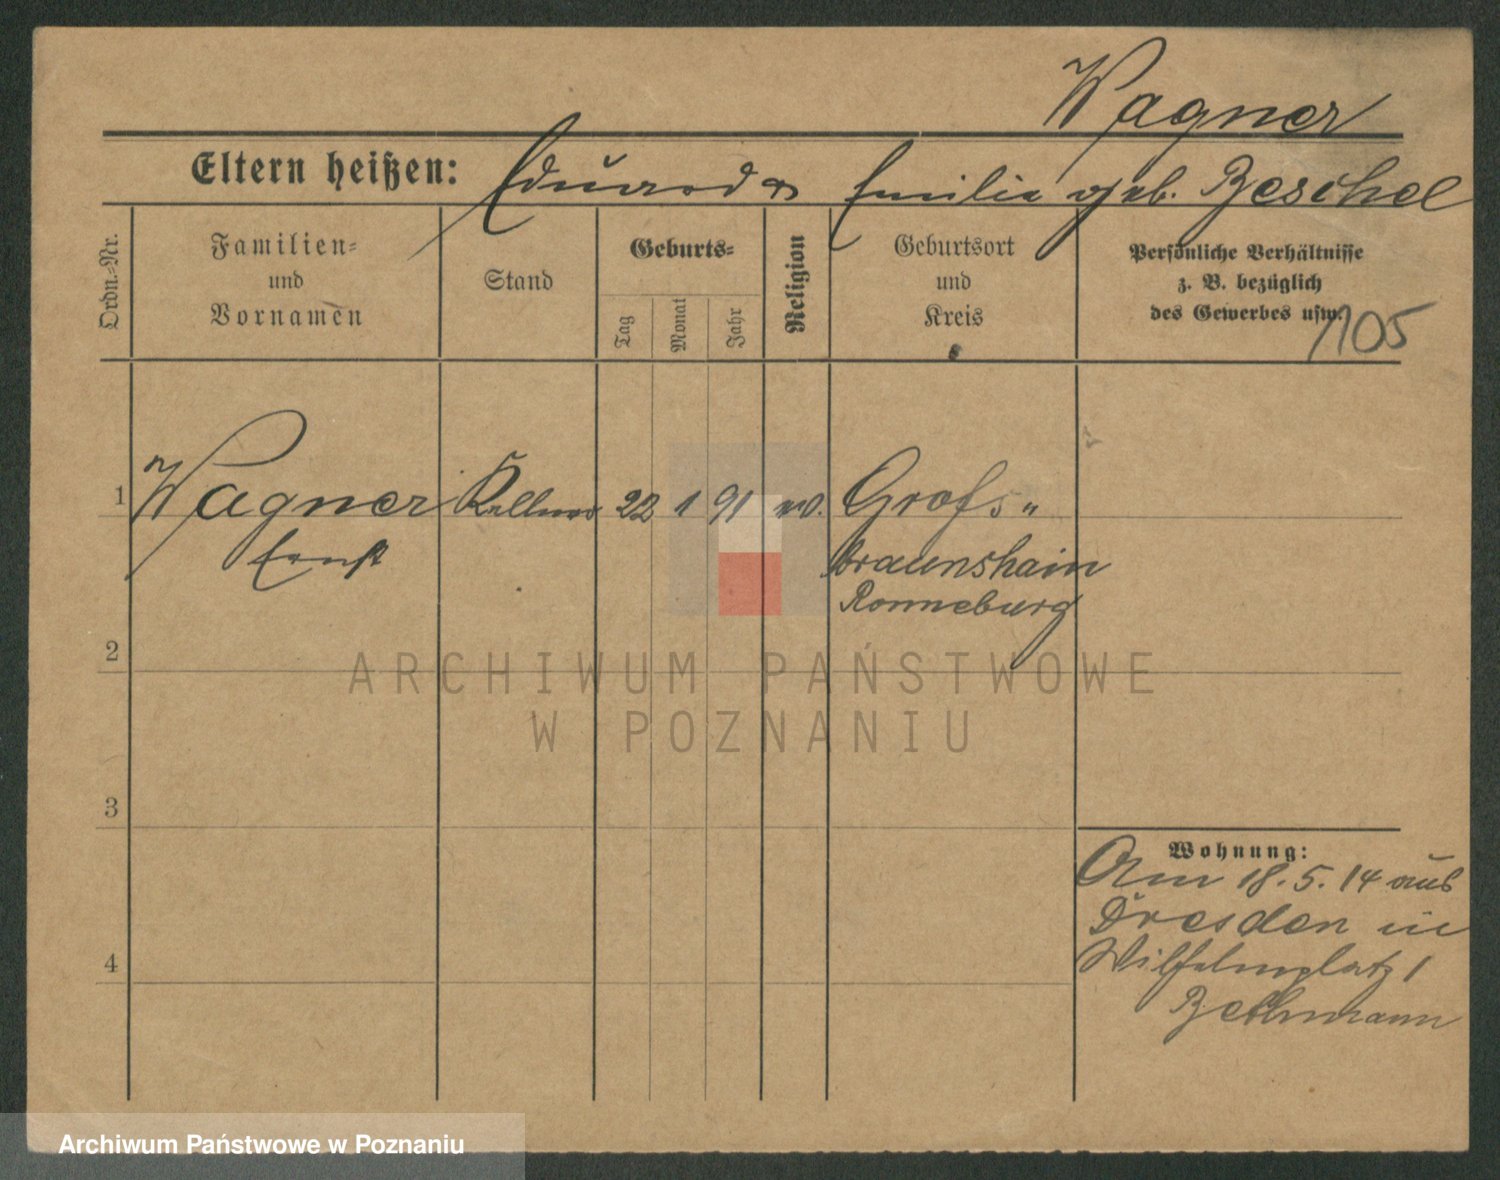 Wagner
Eltern heißen: Eduard & Emilie geb. Beschel
Ordn.-Nr.
Familien-
und
Vornamen
Stand
Geburts-
Tag
Monat
Jahr
Religion
Geburtsort
und
Kreis
Persönliche Verhältnisse
z. B. bezüglich
des Gewerbes usw.
1105
1 Wagner Kellner 22 1 91 ev. Groß-
Ernst Braunshain
Ronneburg
2
ARCHIWUM PAŃSTWOWE
W POZNANIU
3
Wohnung:
Am 18.5.14 aus
Dresden in
4 Wilhelmplatz 1
Bethmann
Archiwum Państwowe w Poznaniu